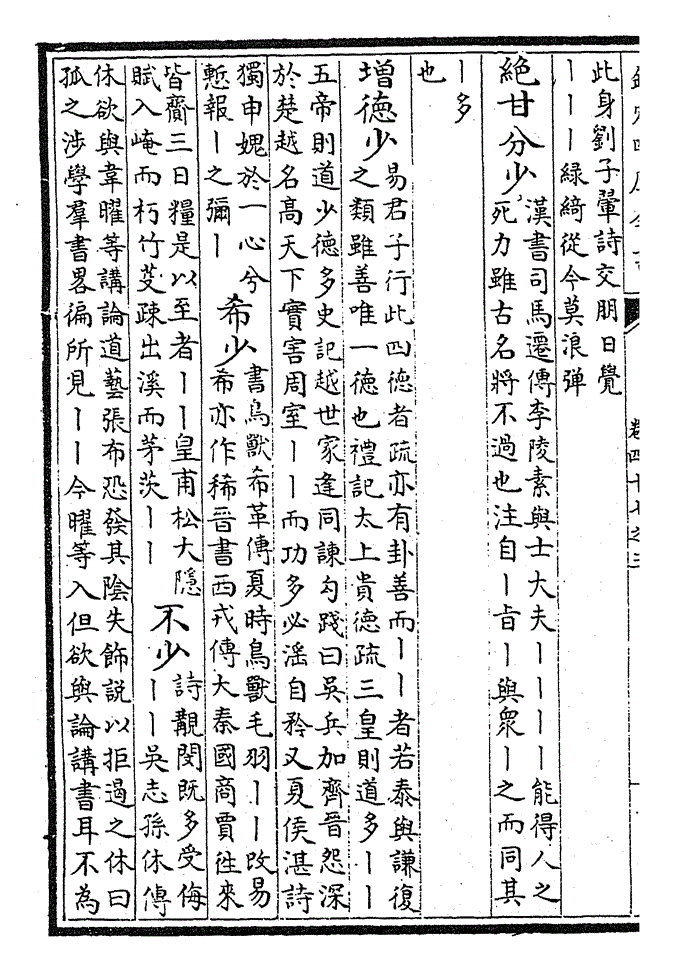 欽定四庫全書
卷四十七之三
此身劉子翬詩交朋日覺
丨丨丨綠綺從今莫浪弹
絶甘分少
漢書司馬遷傳李陵素與士大夫丨丨丨丨能得人之
死力雖古名將不過也注自丨㫖丨與衆丨之而同其
丨多
也
増德少
易君子行此四德者疏亦有卦善而丨丨者若泰與謙復
之類雖善唯一德也禮記太上貴德疏三皇則道多丨丨
五帝則道少德多史記越世家逢同諫勾踐曰吳兵加齊晉怨深
於楚越名髙天下實害周室丨丨而功多必滛自矜又夏侯湛詩
獨申媿於一心兮
慙報丨之彌丨
希少
書鳥獸希革傳夏時鳥獸毛羽丨丨改易
希亦作稀晉書西戎傳大秦國商賈徃來
皆齎三日糧是以至者丨丨皇甫松大隱
賦入崦而朽竹芟疎出溪而茅茨丨丨
不少
詩覯閔既多受侮
丨丨吳志孫休傳
休欲與韋曜等講論道藝張布恐發其陰失飾説以拒遏之休曰
孤之涉學羣書畧徧所見丨丨今曜等入但欲與論講書耳不為